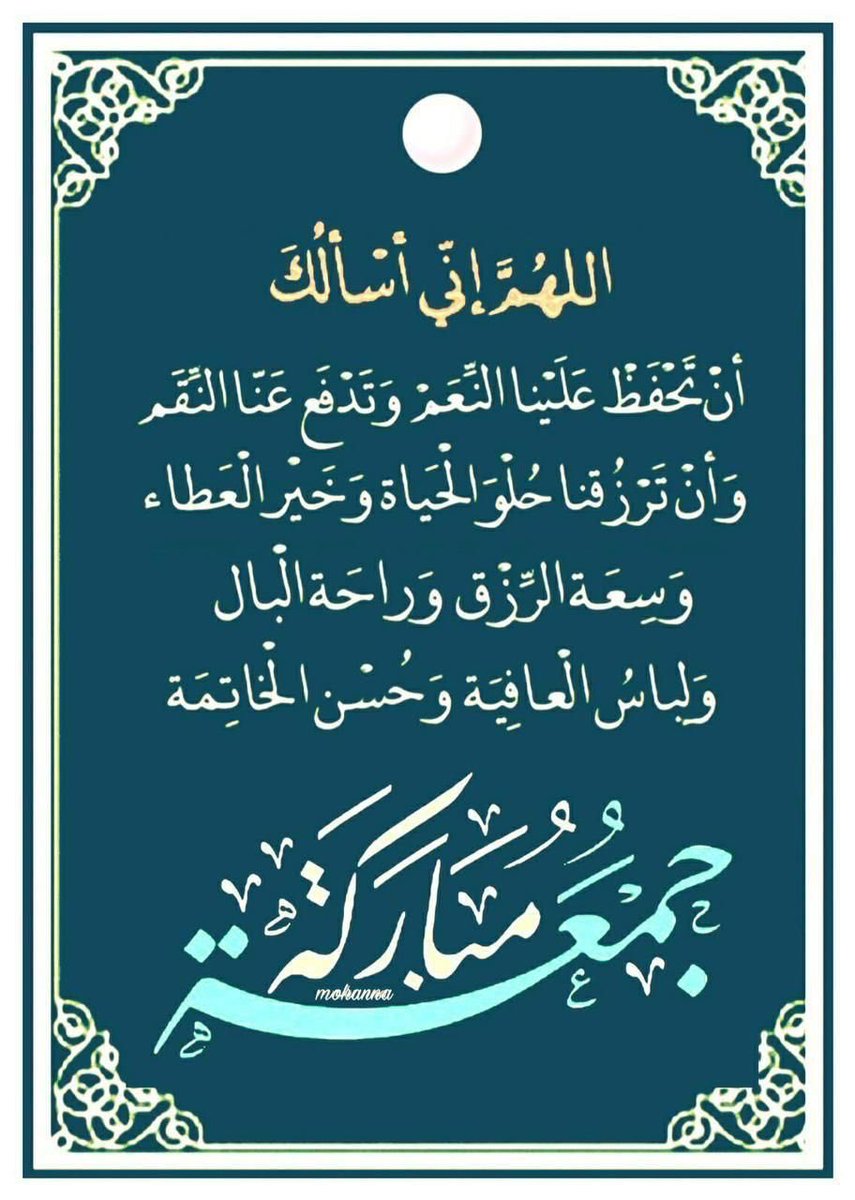 اللهُمَّ إنّي أسْألُكَ
أنْ تَحْفَظْ عَلَيْنا النِّعَمْ وَتَدْفَع عَنّا النِّقَم
وَأنْ تَرْزُقنا حُلْوَ الْحَياة وَخَيْر الْعَطاء
وَسِعَة الرِّزْق وَراحَة الْبال
وَلِباسُ الْعافِيَة وَحُسْن الْخاتِمَة
جُمُعَة مُبَارَكَة
mohanna